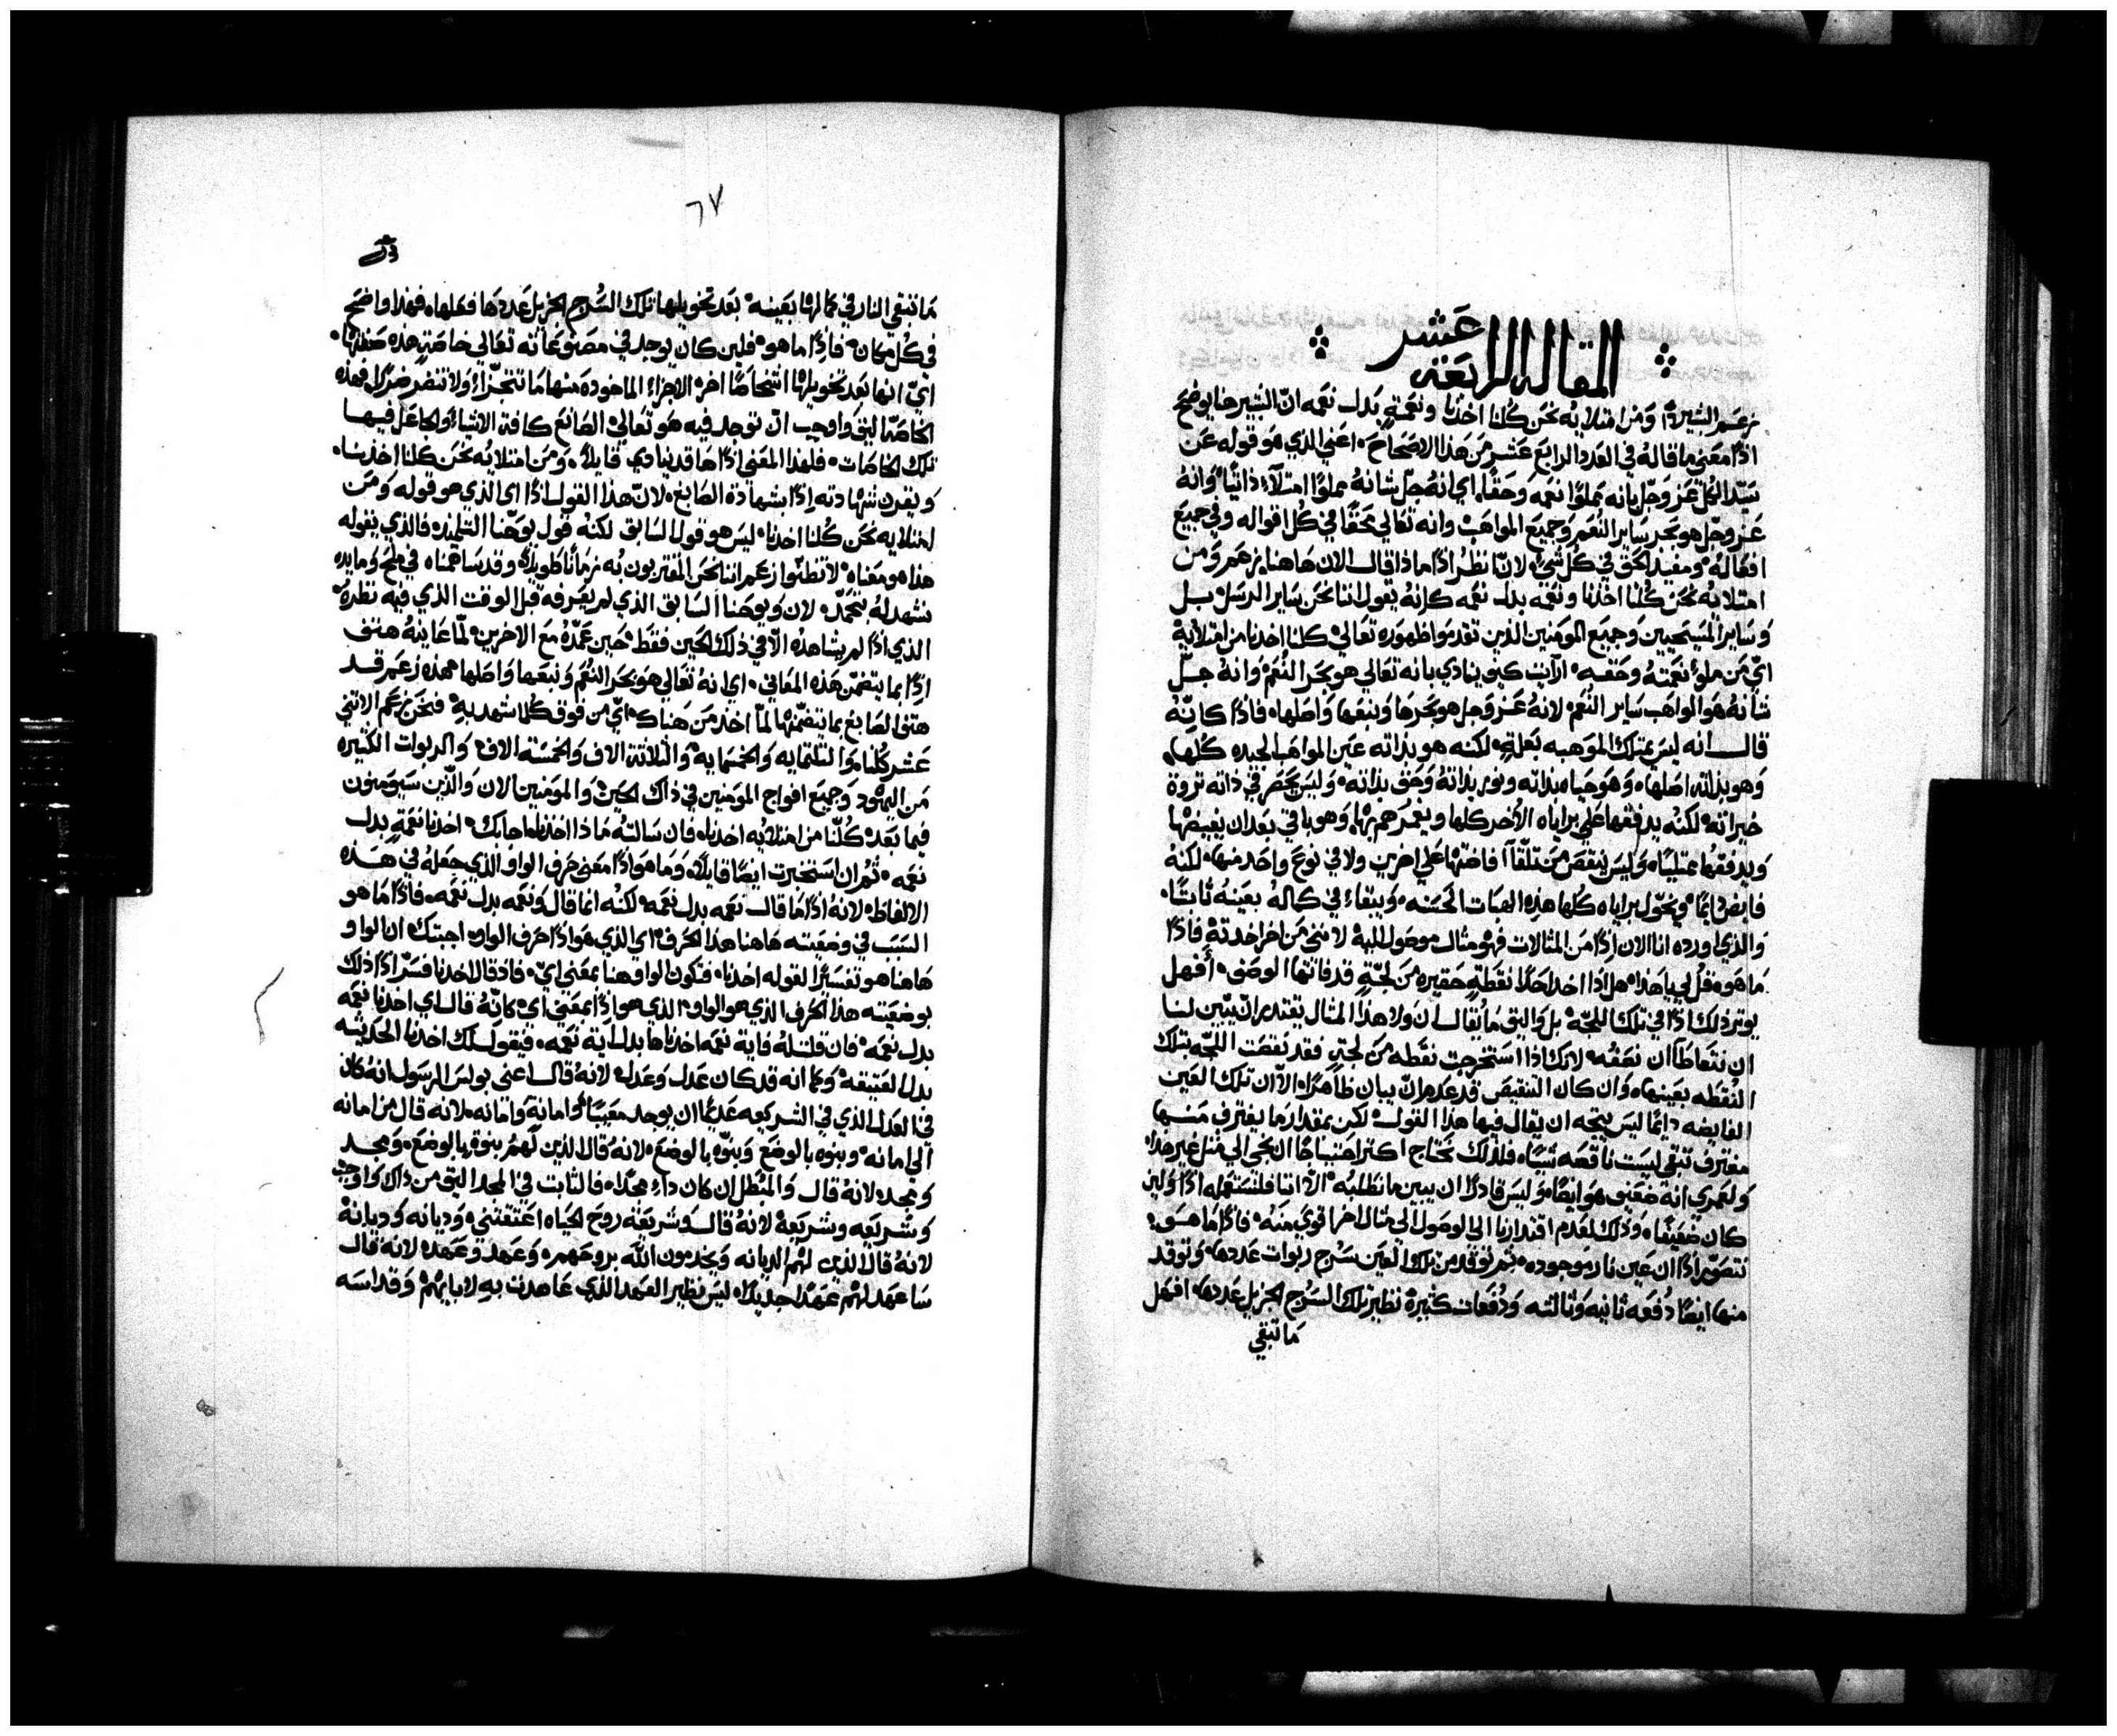 المقاله الرابعة عشر
زعم البشير، ومن امتلايه نحن كلنا اخذنا ونعمةً بدل نعمه ان البشير حنا يوضح
اذًا معني ما قاله في العدد الرابع عشر من هذا الاصحاح، اعني الذي هو قوله عن
سيد الكل عز وجل بانه مملوًا نعمه وحقًا، اي انه جل شانه مملوًا امتلآء ذاتيًا، وانه
عز وجل هو بحر ساير النعم وجميع المواهب وانه تعالي محقًا في كل اقواله وفي جميع
افعاله ومفيد الحق في كل شيء، لان انظر اذًا ماذا قال الان هاهنا، زعم ومن
امتلايه نحن كلنا اخذنا ونعمه بدل نعمه كانه يقول اننا نحن ساير الرسل بل
وساير المسيحيين وجميع المومنين الذين تقدموا ظهوره تعالي كلنا اخذنا من امتلايه
اي من ملوء نعمته وحقه، ارآيت كيف ينادي بانه تعالي هو بحر النعم، وانه جل
شانه هو الواهب ساير النعم، لانه عز وجل هو بحرها وينبعها واصلها، فاذًا كانه
قال انه ليس يمتلك الموهبه بنعلةٍ لكنه هو بذاته عين المواهب الجيده كلها،
وهو بذاته اصلها، وهو حياه بذاته ونور بذاته وحق بذاته، وليس يحصر في ذاته ثروة
خيراته، لكنه يدفقها علي براياه الاُخر كلها ويغمرهم بها، وهو باقي بعد ان يفيضها
ويدفقها ممتليًا، وليس ينقص من تلقآ افاضتها علي اخرين ولا في نوع واحد منها، لكنه
فايض دايمًا، ويخول براياه كلها هذه الهبات الحسنه، ويبقاء في كماله بعينه ثابتًا،
والذي اورده انا الان اذًا من المثالات فهو مثال موصول اليه لانني من اخر اخذته فاذًا
ما هو، قل لي يا هذا، هل اذا اخذ احدًا نقطةٍ حقيره من لجّةٍ قد فاتها الوصف، أفهل
يوتر ذلك اذًا في تلك اللجّه، بل واليق ما يقال ان ولا هذا المثال يقتدر ان يبين لنا
ان نتعاطا ان نصفه لانك اذا استخرجت نقطه من لجتٍ فقد نقصت اللجّه بتلك
النقطه بعينها، وان كان التنقيص قد عدم ان يبان ظاهرًا، الا ان تلك العين
الفايضه دايمًا ليس يتجه ان يقال فيها هذا القول، لكن بمقدار ما يغترف منها
مغترف تبقي ليست ناقصه شيًا، فلذلك نحتاج اكثر احتياجًا ان نجي الي مثل غير هذا،
ولعمري انه ضعيف هو ايضًا، وليس قادرًا ان يبين ما نطلبه، الا اننا فلنستعمله اذًا ولين
كان ضعيفًا، وذلك لعدم اقتدارنا الي الوصول الي مثال اخر اقوي منه، فاذًا ما هو،
نتصور اذًا ان عين نار موجوده، ثم توقد من تلك العين سُرج ربوات عددها، وتوقد
منها ايضًا دفعه ثانيه وثالثه ودفعات كثيرة نظير تلك السُرج الجزيل عددها، افهل
ما تبقي
٦٧
ما تبقي النار في كمالها بعينه، بعد تخويلها تلك السُرج الجزيل عددها فعلها، فهذا واضح
في كل مكان، فاذًا ما هو، فلين كان يوجد في مصنوعاته تعالي خاصةٍ هذه صفتها،
ايّ انها بعد تخويلها اشخاصًا اخر، الاجزاء الماخوده منها ما تتجزاء، ولا تنضر ضررًا، فهذه
الخاصة اليق واوجب ان توجد فيه هو تعالي الصانع كافة الاشياء، والجاعل فيها
تلك الخاصات، فلهذا المعني اذًا ها قد نادي قايلًا، ومن امتلايه نحن كلنا اخذنا،
ويقرن شهادته اذًا بشهادة الصابغ، لان هذا القول اذًا اي الذي هو قوله ومن
امتلايه نحن كلنا اخذنا، ليس هو قول السابق لكنه قول يوحنا التلميذ، فالذي يقوله
هذا هو معناه، لا تظنوا زعم اننا نحن المقتربون به زمانًا طويلًا، وقد ساهمناه في ملح ومايده
نشهد له بتجمّل، لان ويوحنا السابق الذي لم يعرفه قبل الوقت الذي فيه نظره،
الذي اذًا لم يشاهده الا في ذلك الحين فقط، حين عمّده مع الاخرين، لمّا عاينه هتف
اذًا بما يتضمن هذه المعاني، اي انه تعالي هو بحر النعم وينبعها واصلها، فهذه زعم قد
هتف الصابغ بما يتضمنها لمّا اخذ من هناك، ايّ من فوق كلما شهد به، فنحن زعم الاثني
عشر كلنا، والثلثمايه والخمسمايه والثلاثة الاف والخمسة الاف، والربوات الكثيره
من اليهود وجميع افواج المومنين في ذاك الحين، والمومنين الان والذين سيومنون
فيما بعد، كلنا من امتلايه اخذنا، فان سالته ماذا اخذنا، اجابك، اخذنا نعمةٍ بدل
نعمه، ثم ان استخبرت ايضًا قايلًا، وما هو اذًا معني حرف الواو الذي جعله في هذه
الالفاظ، لانه اذًا ما قال نعمه بدل نعمه، لكنه انما قال ونعمه بدل نعمه، فاذًا ما هو
السبب في وضعيته هاهنا هذا الحرف، اي الذي هو اذًا حرف الواو، اجبتك ان الواو
هاهنا هو تفسيرًا لقوله اخذنا، فتكون الواو هنا بمعني ايّ، فاذ قال اخذنا فسّر اذًا ذلك
بوضعيته هذا الحرف الذي هو الواو، الذي هو اذًا بمعني ايّ، كانّه قال اي اخذنا نعمه
بدل نعمه، فان قلت له فاية نعمه اخذناها بدل اية نعمه، فيقول لك اخذنا الحديثه
بدل العتيقه، وكما انه قد كان عدل وعدل، لانه قال اعني بولس الرسول انه كان
في العدل الذي في الشريعه عديمًا ان يوجد معيبًا، وامانة وامانه، لانه قال من امانه
الي امانه، وبنوه بالوضع وبنوّه بالوضع، لانه قال الذين لهم بنوتها بالوضع، ومجد
ومجد، لانه قال والمبطل ان كان داء مجد، فالثابت في المجد اليق من ذاك واوجب،
وشريعه وشريعة لانه قال وشريعة روح الحياه اعتقتني، وديانه وديانة
لانه قال الذين لهم الديانه ويخدمون الله بروحهم، وعهد وعهد، لانه قال
ساعهد لهم عهدًا جديدًا، ليس نظير العهد الذي عاهدت به لابايهم، وقداسه